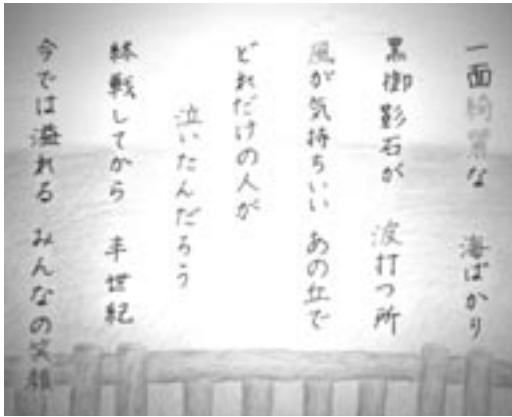 一面綺麗な 海ばかり
黒御影石が 波打つ所
風が気持ちいい あの丘で
どれだけの人が
泣いたんだろう
終戦してから 半世紀
今では溢れる みんなの笑顔